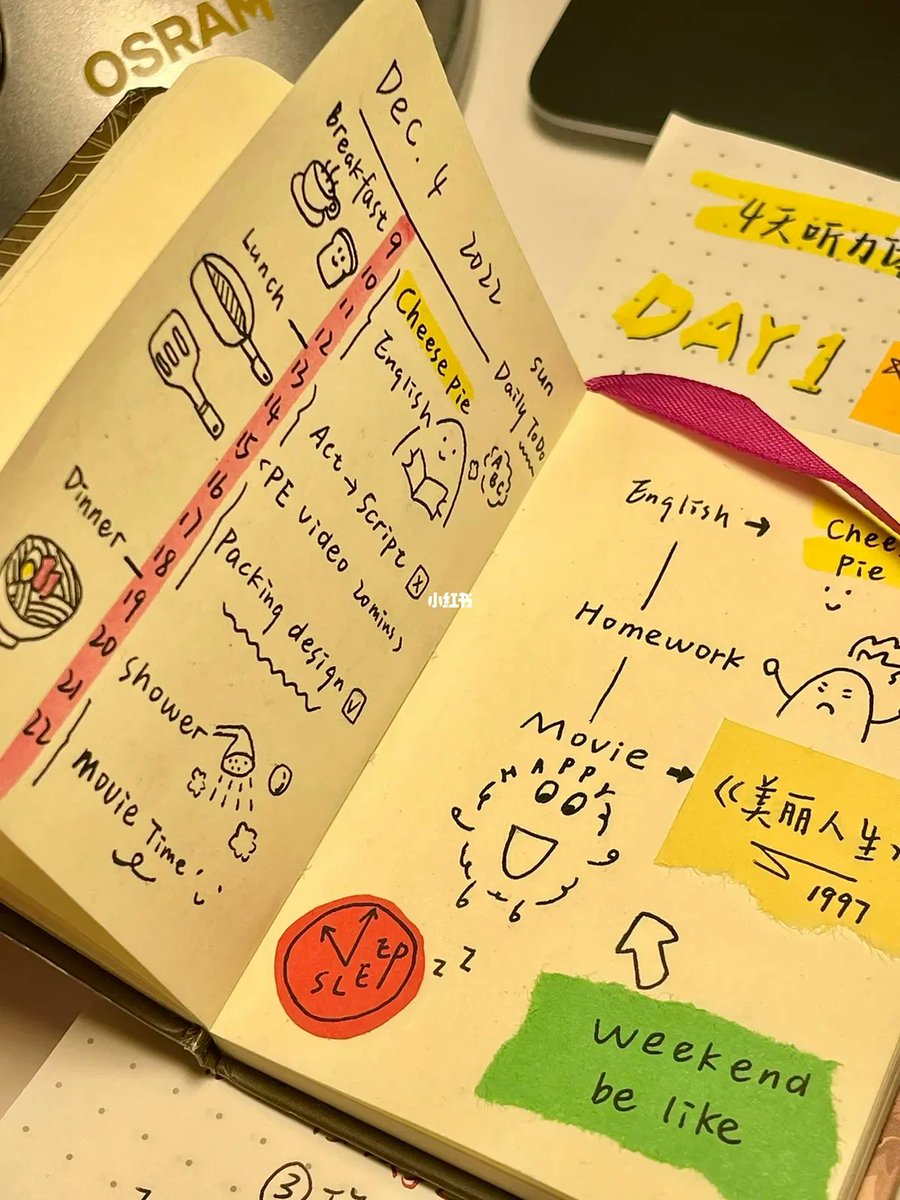 OSRAM
Dec. 4 2022
Sun
Daily ToDo
Breakfast
Lunch
Dinner
9
10
11
12
13
14
15
16
17
18
19
20
21
22
Cheese pie
English
A
BC
Act → Script
<PE video 20mins>
Packing design
Shower
Movie Time
小红书
4天听力
DAY 1
English →
Chee
Pie
Homework
Movie →
HAPPY
《美丽人生
1997
SLEEP
z z
weekend
be like
③